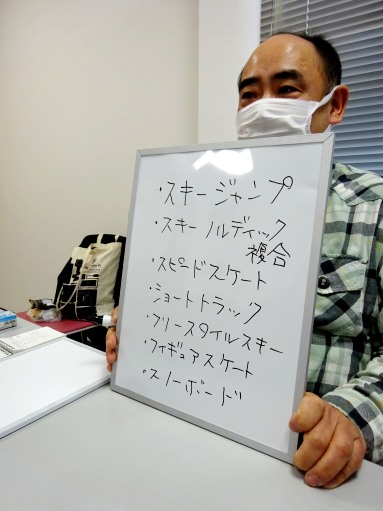 ・スキージャンプ
・スキーノルディック
複合
・スピードスケート
・ショートトラック
・フリースタイルスキー
・フィギュアスケート
・スノーボード